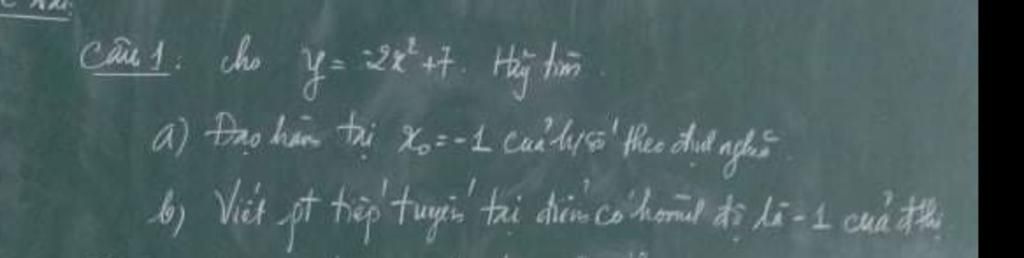 Câu 1: Cho y = -2x² + 7. Hãy tìm
a) Đạo hàm tại x₀ = -1 của h/số theo định nghĩa
b) Viết pt tiếp tuyến tại điểm có hoành độ là -1 của đthị